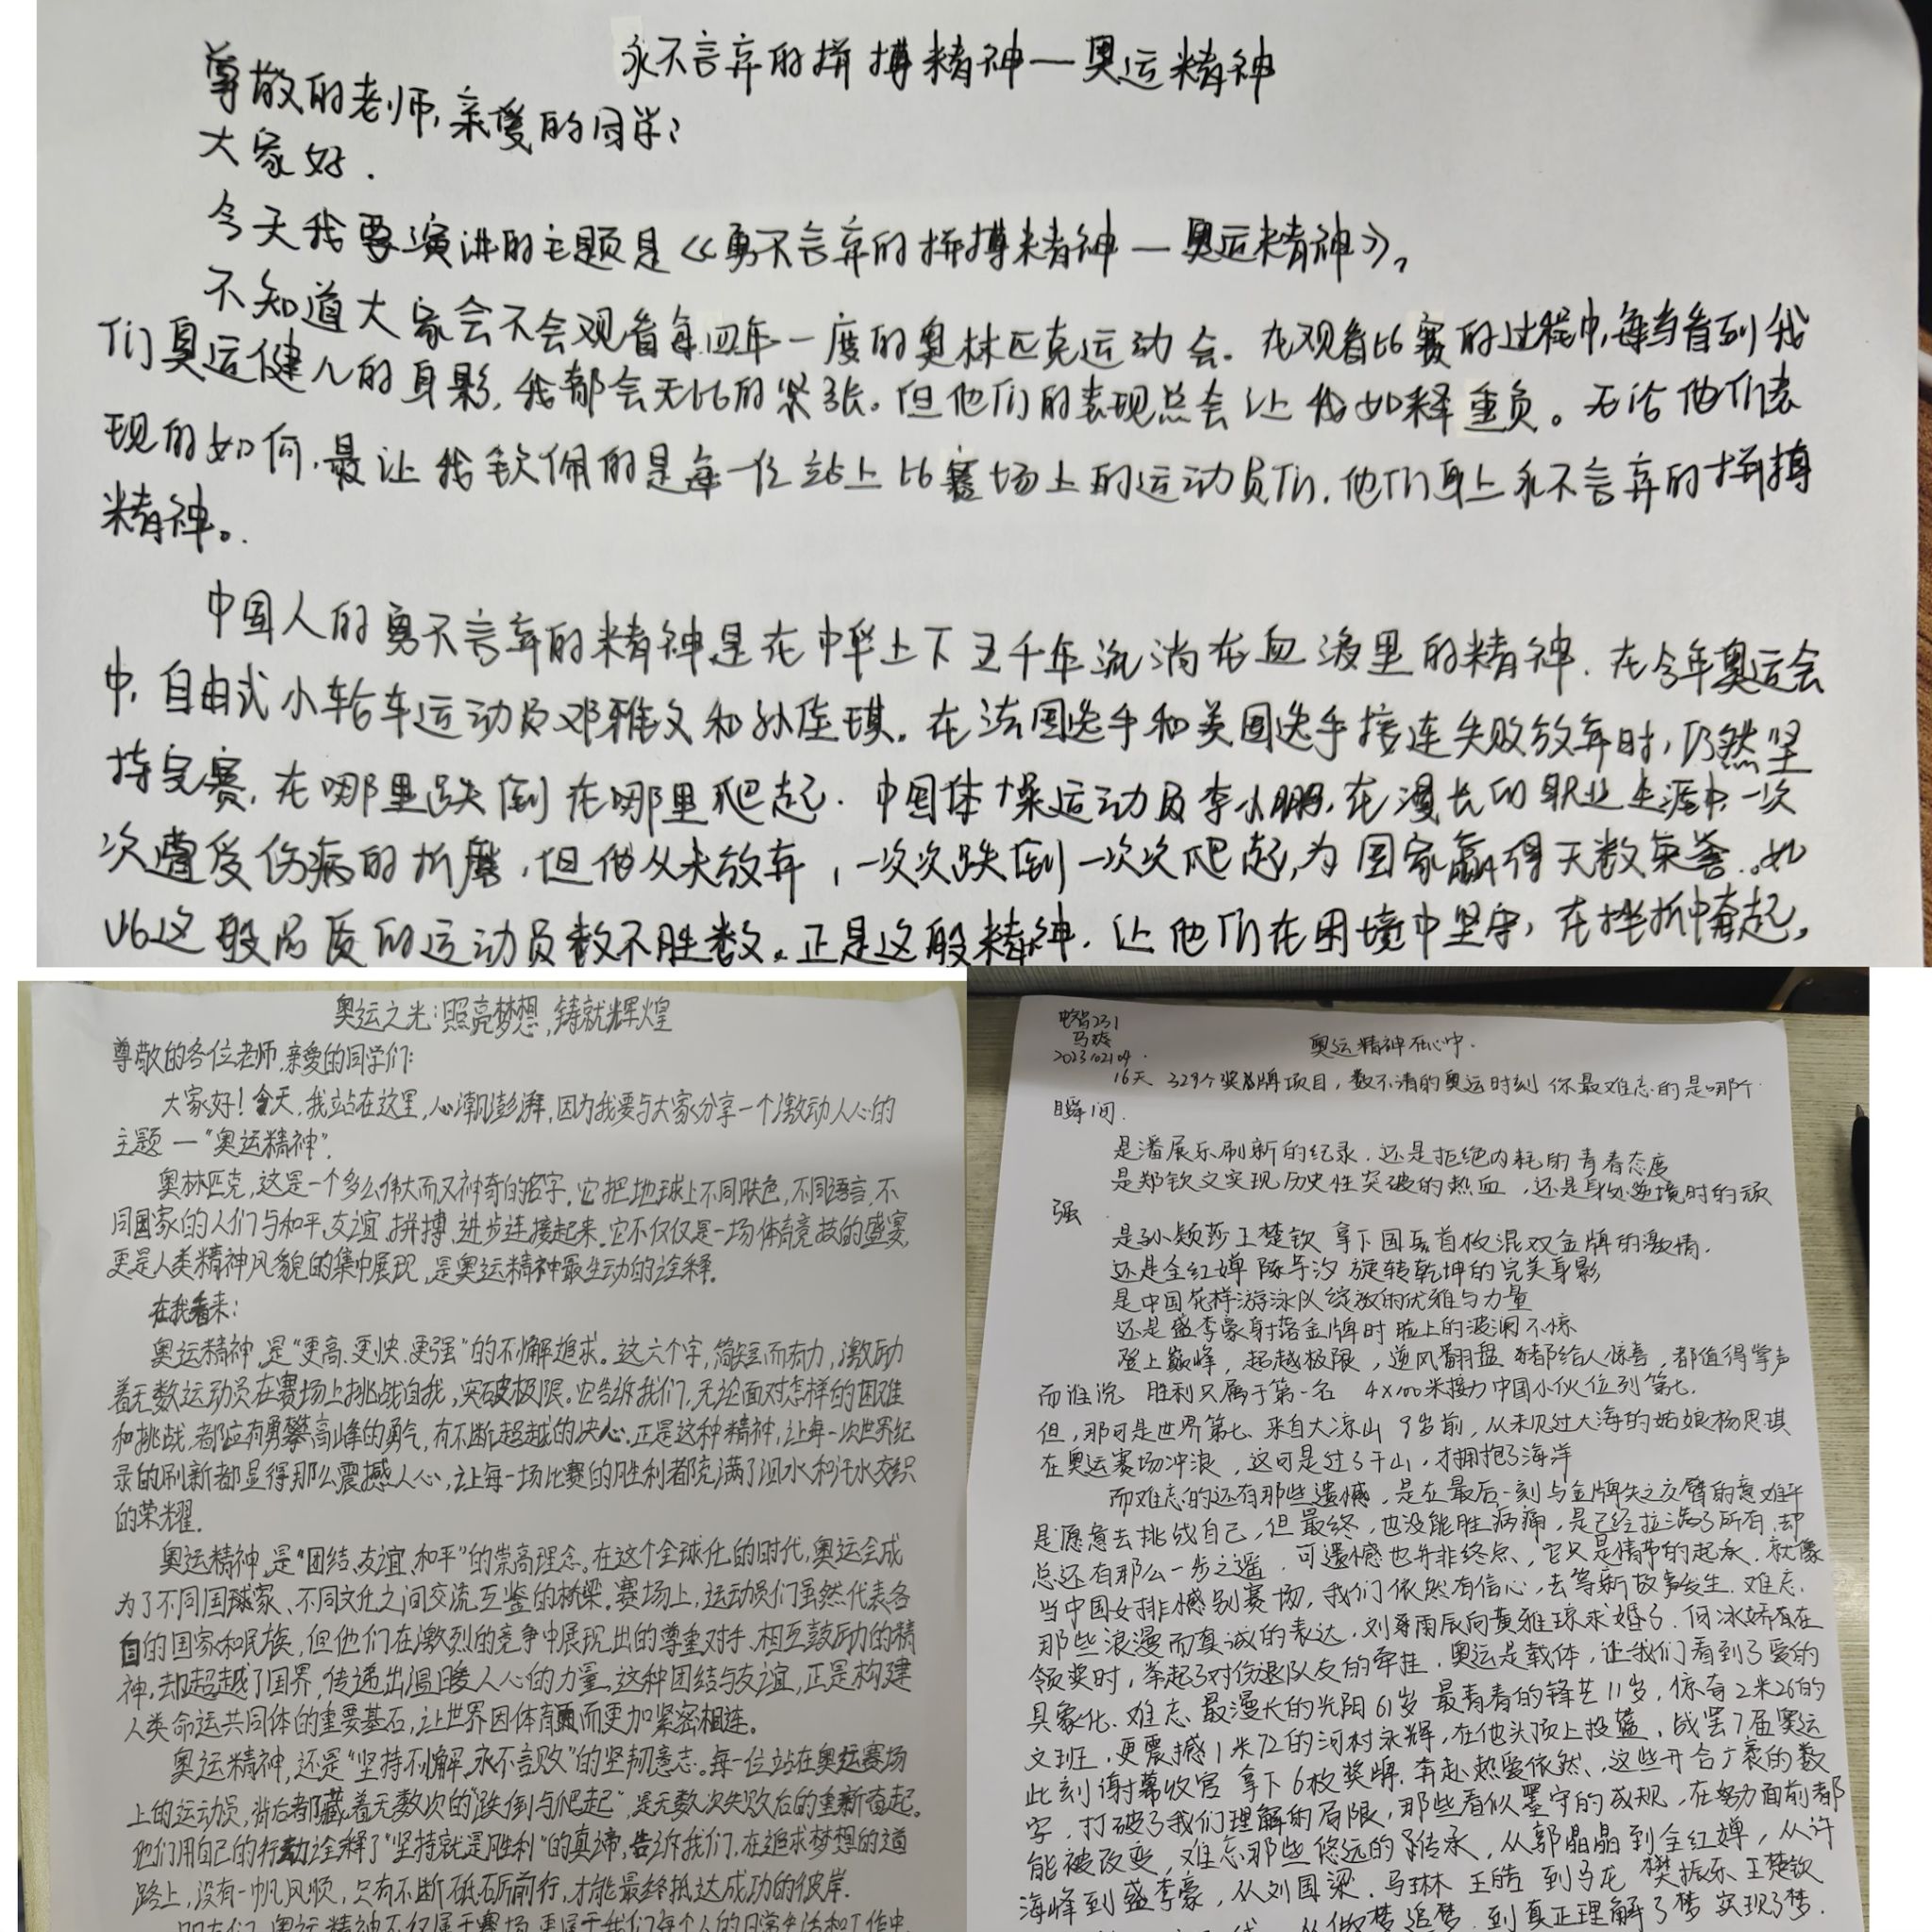 永不言弃的拼搏精神—奥运精神
尊敬的老师,亲爱的同学:
大家好.
今天我要演讲的主题是《勇不言弃的拼搏精神—奥运精神》,
不知道大家会不会观看每四年一度的奥林匹克运动会。在观看比赛的过程中,每当看到我
们奥运健儿的身影,我都会无比的紧张。但他们的表现总会让我如释重负。无论他们表
现的如何,最让我钦佩的是每一位站上比赛场上的运动员们,他们身上永不言弃的拼搏
精神。
中国人的勇不言弃的精神,是在中华上下五千年流淌在血液里的精神.在今年奥运会
中,自由式小轮车运动员邓雅文和孙佳琪,在法国选手和美国选手接连失败放弃时,仍然坚
持完赛,在哪里跌倒在哪里爬起.中国体操运动员李小鹏,在漫长的职业生涯中,一次
次遭受伤病的折磨,但他从未放弃,一次次跌倒一次次爬起,为国家赢得无数荣誉.如
此这般品质的运动员数不胜数。正是这般精神,让他们在困境中坚守,在挫折中奋起,
奥运之光:照亮梦想,铸就辉煌
尊敬的各位老师,亲爱的同学们:
大家好!今天,我站在这里,心潮澎湃,因为我要与大家分享一个激动人心的
主题—"奥运精神".
奥林匹克,这是一个多么伟大而又神奇的名字,它把地球上不同肤色,不同语言,不
同国家的人们与和平,友谊,拼搏,进步连接起来.它不仅仅是一场体育竞技的盛宴,
更是人类精神风貌的集中展现,是奥运精神最生动的诠释。
在我看来:
奥运精神,是"更高、更快、更强"的不懈追求。这六个字,简短而有力,激励
着无数运动员在赛场上挑战自我,突破极限。它告诉我们,无论面对怎样的困难
和挑战,都应有勇攀高峰的勇气,有不断超越的决心.正是这种精神,让每一次世界纪
录的刷新都显得那么震撼人心,让每一场比赛的胜利都充满了泪水和汗水交织
的荣耀.
奥运精神,是"团结、友谊、和平"的崇高理念。在这个全球化的时代,奥运会成
为了不同国家、不同文化之间交流互鉴的桥梁。赛场上,运动员们虽然代表各
自的国家和民族,但他们在激烈的竞争中展现出的尊重对手、相互鼓励的精
神,却超越了国界,传递出温暖人心的力量.这种团结与友谊,正是构建
人类命运共同体的重要基石,让世界因体育而更加紧密相连。
奥运精神,还是"坚持不懈,永不言败"的坚韧意志。每一位站在奥运赛场
上的运动员,背后都藏着无数次的"跌倒与爬起",是无数次失败后的重新奋起。
他们用自己的行动诠释了"坚持就是胜利"的真谛,告诉我们,在追求梦想的道
路上,没有一帆风顺,只有不断砥砺前行,才能最终抵达成功的彼岸.
奥运精神不仅属于赛场,更属于我们每个人的日常生活和工作中
电智231
2023102104.
奥运精神在心中.
16天 329个奖牌项目,数不清的奥运时刻 你最难忘的是哪个
瞬间.
是潘展乐刷新的纪录.还是拒绝内耗的青春态度
是郑钦文实现历史性突破的热血,还是身处逆境时的顽
强
是孙颖莎王楚钦 拿下国乒首枚混双金牌的激情.
还是全红婵陈芋汐 旋转乾坤的完美身影
是中国花样游泳队绽放的优雅与力量
还是盛李豪射落金牌时脸上的波澜不惊
登上巅峰,超越极限,逆风翻盘 都给人惊喜,都值得掌声
而谁说 胜利只属于第一名 4×100米接力中国小伙位列第七.
但,那可是世界第七、来自大凉山 9岁前,从未见过大海的姑娘杨思琪
在奥运赛场冲浪,这可是过了千山,才拥抱了海洋
而难忘的还有那些遗憾,是在最后一刻与金牌失之交臂的意难平
是愿意去挑战自己,但最终,也没能胜病痛,是已经拉满了所有,却
总还有那么一步之遥.可遗憾也并非终点,它只是情节的起承.就像
当中国女排憾别赛场,我们依然有信心,去等新故事发生.难忘.
那些浪漫而真诚的表达,刘雨辰向黄雅琼求婚了.何冰娇在
领奖时,举起了对伤退队友的牵挂.奥运是载体,让我们看到了爱的
具象化.难忘.最漫长的光阴61岁 最青春的锋芒11岁,惊奇2米26的
文班,更震撼1米72的河村永辉,在他头顶上投篮,战罢7届奥运
此刻谢幕收官 拿下6枚奖牌.奔赴热爱依然、这些开合广袤的数
字,打破了我们理解的局限,那些看似墨守的成规,在努力面前都
能被改变,难忘那些悠远的传承,从郭晶晶到全红婵,从许
海峰到盛李豪,从刘国梁.马琳 王皓 到马龙 樊振东 王楚钦
从做梦追梦,到真正理解了梦 实现了梦.